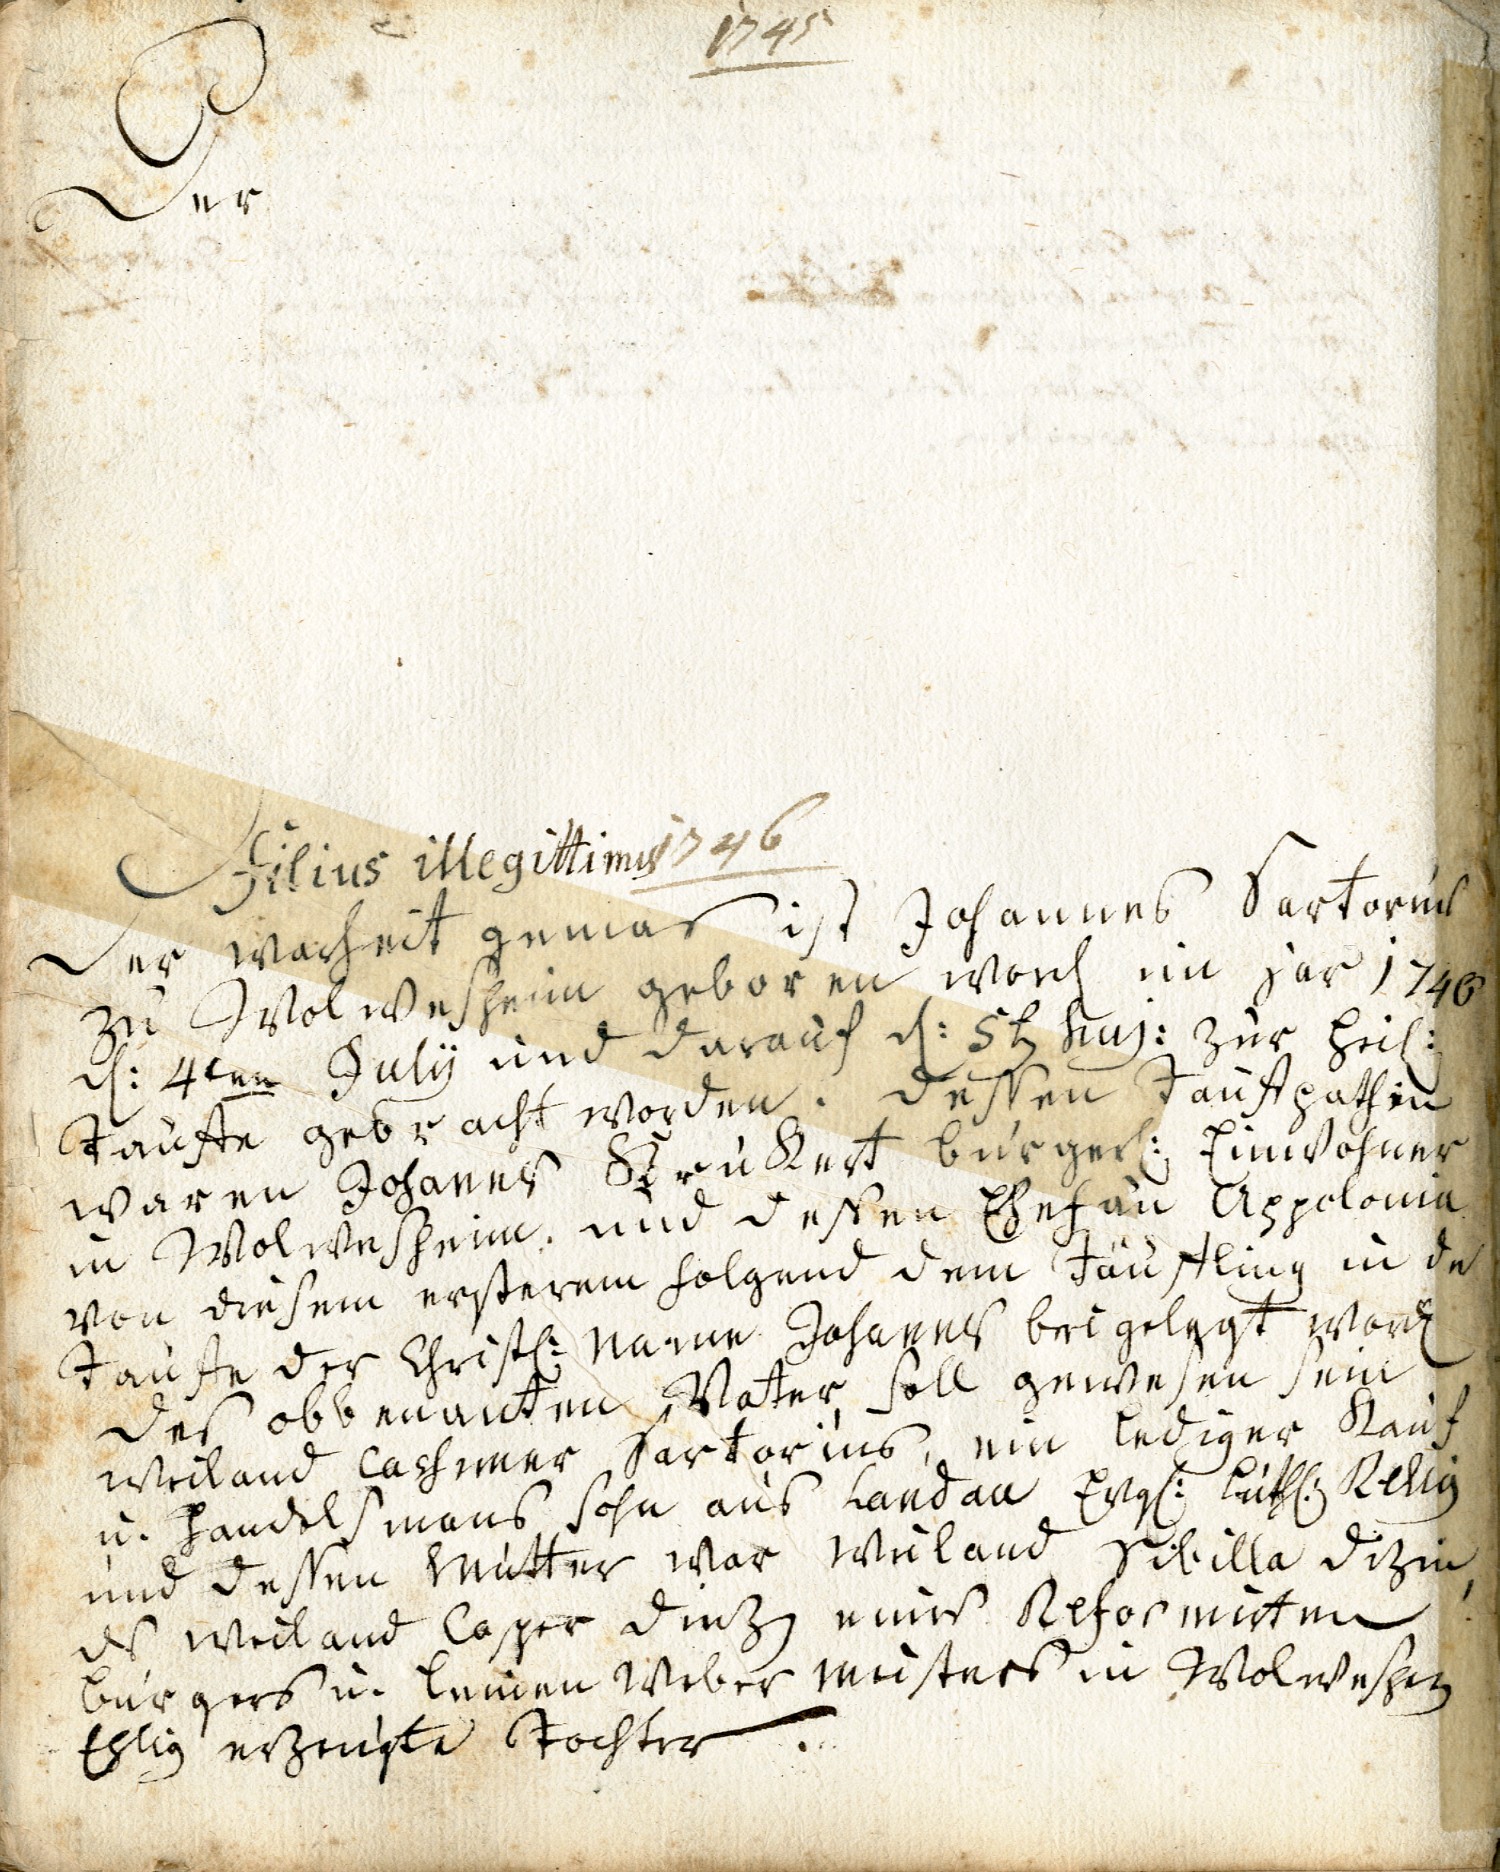 1745
Der
Filius illegittimus 1746
Der warheit gemas ist Johannes Sartorius
zu Wolmesheim geboren word im jar 1746
d: 4ten July und darauf d: 5t huj: zur heil:
Tauffe gebracht worden. dessen Tauffpathen
waren Johanes burgerl: Einwohner
in Wolmesheim. und dessen Ehefrau Appolonia
von diesem ersterem folgend dem Täuffling in der
Tauffe der Christl: Name Johanes beigelegt word
des obbenanten Vatter soll gewesen sein
weiland Cashmer Sartorius, ein lediger Kauf
u. Handelsmans sohn aus Landau Evgl: Luthl: Relig
und dessen Mutter war weiland Sibilla
ds weiland Casper eines Reformirten
burgers u. leinen Weber meisters in Wolmeshm
Ehlig erzeugte Tochter.